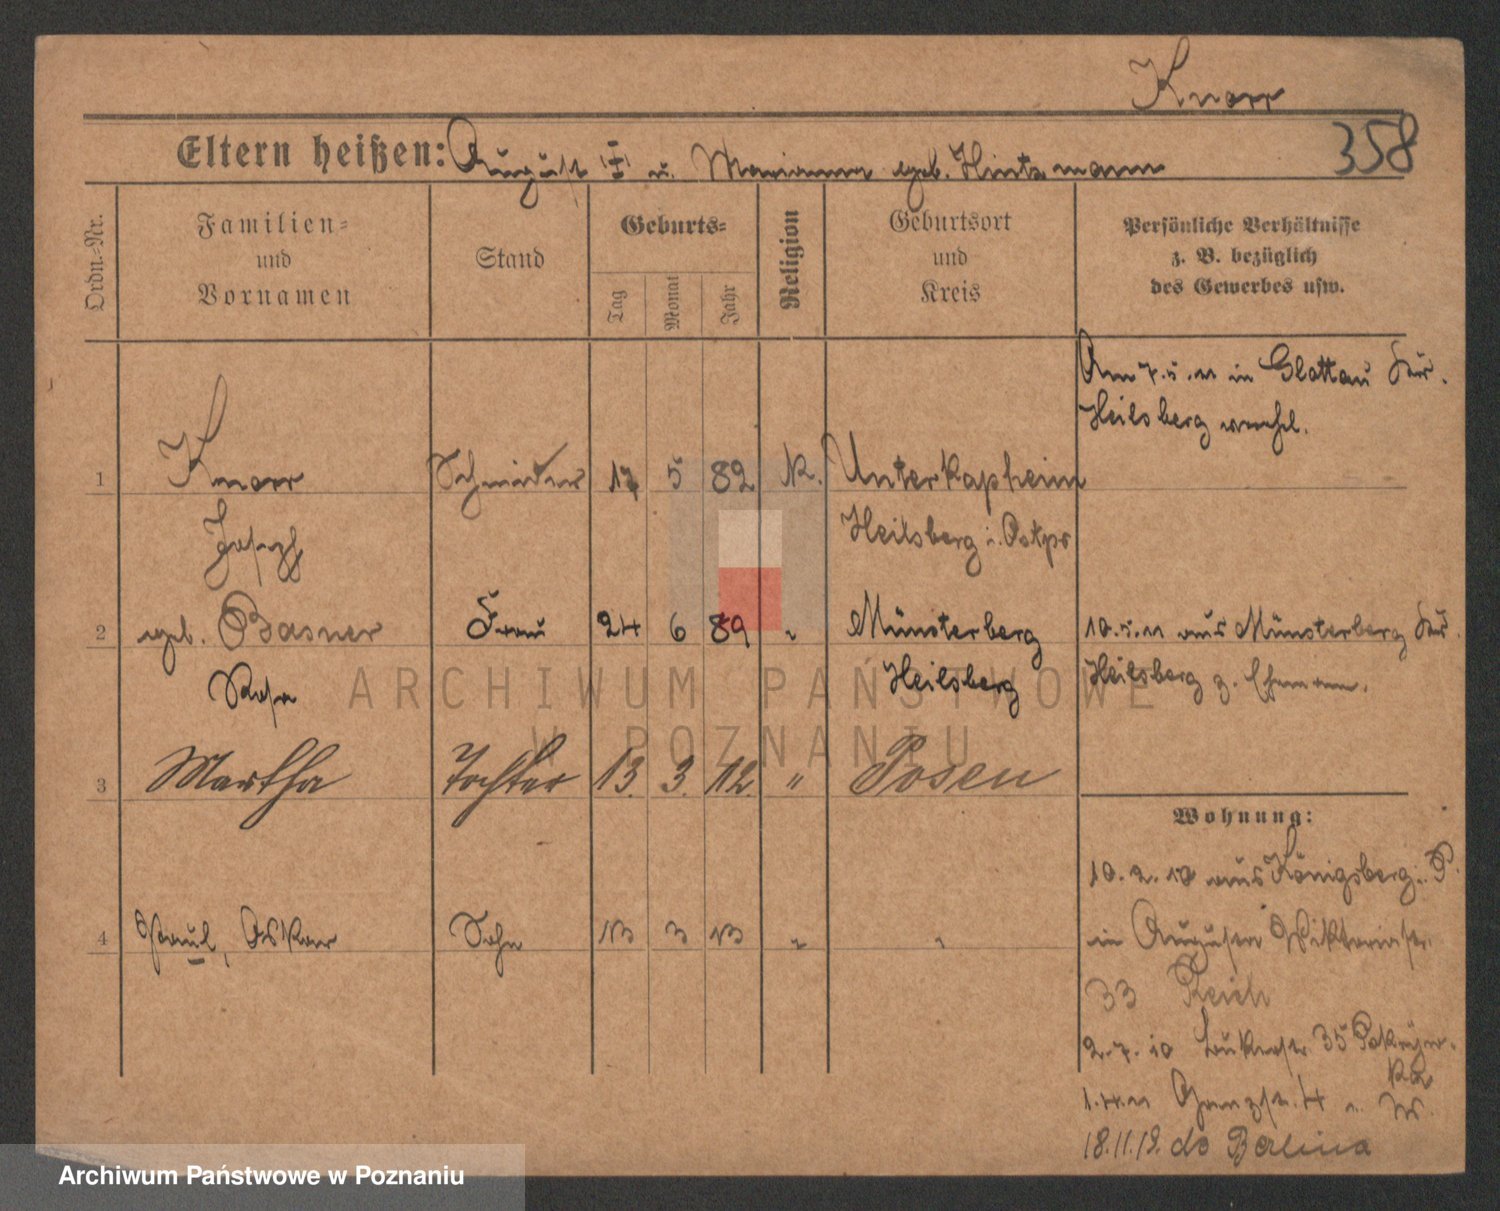 Knorr
358
Eltern heißen: August u. Marianna geb. Hintzmann
Ordn.-Nr.
Familien-
und
Vornamen
Stand
Geburts-
Tag
Monat
Jahr
Religion
Geburtsort
und
Kreis
Persönliche Verhältnisse
z. B. bezüglich
des Gewerbes usw.
Am 7.5.11 in Glottau
Heilsberg verehel.
1 Knorr Schneider 17 5 82 K. Unterkapheim
Joseph Heilsberg i. Ostpr
2 geb. Basner Frau 24 6 89 " Münsterberg 10.5.11 aus Münsterberg
Rosa Heilsberg Heilsberg z. Ehemann.
3 Martha Tochter 13. 3. 12. " Posen
Wohnung:
10.2.10 aus Königsberg i. P.
4 Paul, Oskar Sohn 13 3 13 " "
in Augusta Viktoriastr.
33 Reich
2.7.10 35
1.4.11 4
18.11.19. do Berlina
ARCHIWUM PAŃSTWOWE
W POZNANIU
Archiwum Państwowe w Poznaniu